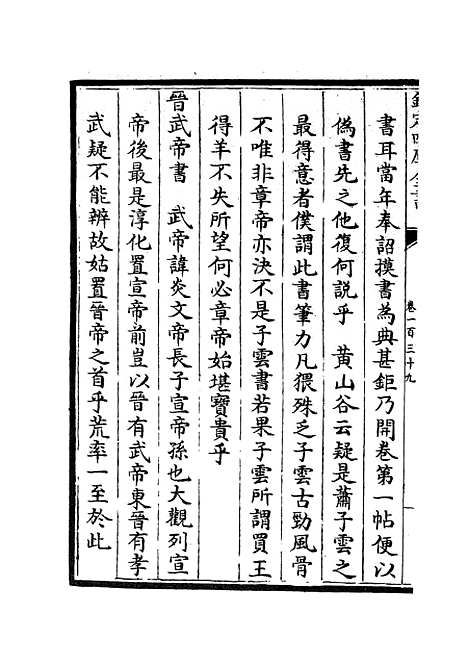 書耳當年奉詔摸書為典甚鉅乃開卷第一帖便以
偽書先之他復何說乎　黃山谷云疑是蕭子雲之
最得意者僕謂此書筆力凡猥殊乏子雲古勁風骨
不唯非章帝亦決不是子雲書若果子雲所謂買王
得羊不失所望何必章帝始堪寶貴乎
晉武帝書　武帝諱炎文帝長子宣帝孫也大觀列宣
帝後最是淳化置宣帝前豈以晉有武帝東晉有孝
武疑不能辨故姑置晉帝之首乎荒率一至於此
卷一百三十九